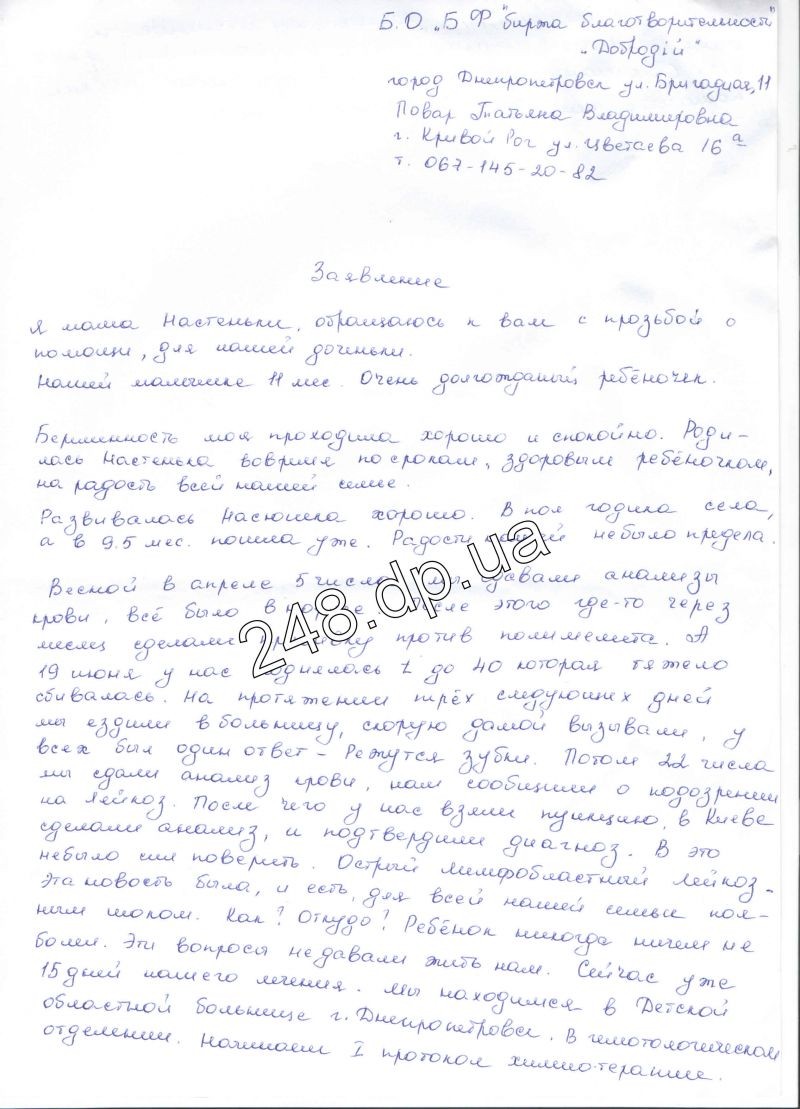 Б.О. „Б Ф "биржа благотворительности"
„Добродій"
город Днепропетровск ул. Бригадная, 11
Повар Татьяна Владимировна
г. Кривой Рог ул. Цветаева 16 а
т. 067-145-20-82
Заявление
Я мама Настеньки, обращаюсь к вам с прозьбой о
помощи, для нашей доченьки.
Нашей малышке 11 мес. Очень долгожданый ребёночек.
Беременность моя проходила хорошо и спокойно. Роди-
лась Настенька вовремя по срокам, здоровым ребёночком,
на радость всей нашей семье.
Развивалась Настюшка хорошо. В пол годика села,
а в 9.5 мес. пошла уже. Радости нашей небыло предела.
Весной в апреле 5 числа мы сдавали анализы
крови, всё было в норме. После этого где-то через
месяц сделали прививку против полимелита. А
19 июня у нас поднялась t до 40 которая тяжело
сбивалась. На протяжении трёх следующих дней
мы ездили в больницу, скорую дамой вызывали, у
всех был один ответ - Режутся зубки. Потом 22 числа
мы сдали анализ крови, нам сообщили о подозрении
на Лейкоз. После чего у нас взяли пункцию, в Киеве
сделали анализ, и подтвердили диагноз. В это
небыло сил поверить. Острый лимфобластный лейкоз -
Эта новость была, и есть, для всей нашей семьи пол-
ным шоком. Как? Откудо? Ребёнок никогда ничем не
болел. Эти вопросы недавали жить нам. Сейчас уже
15 дней нашего лечения. Мы находимся в Детской
областной больнице г. Днепропетровск. В гемотологическом
отделении. Начинаем I протокол химио-терапие.
248.dp.ua